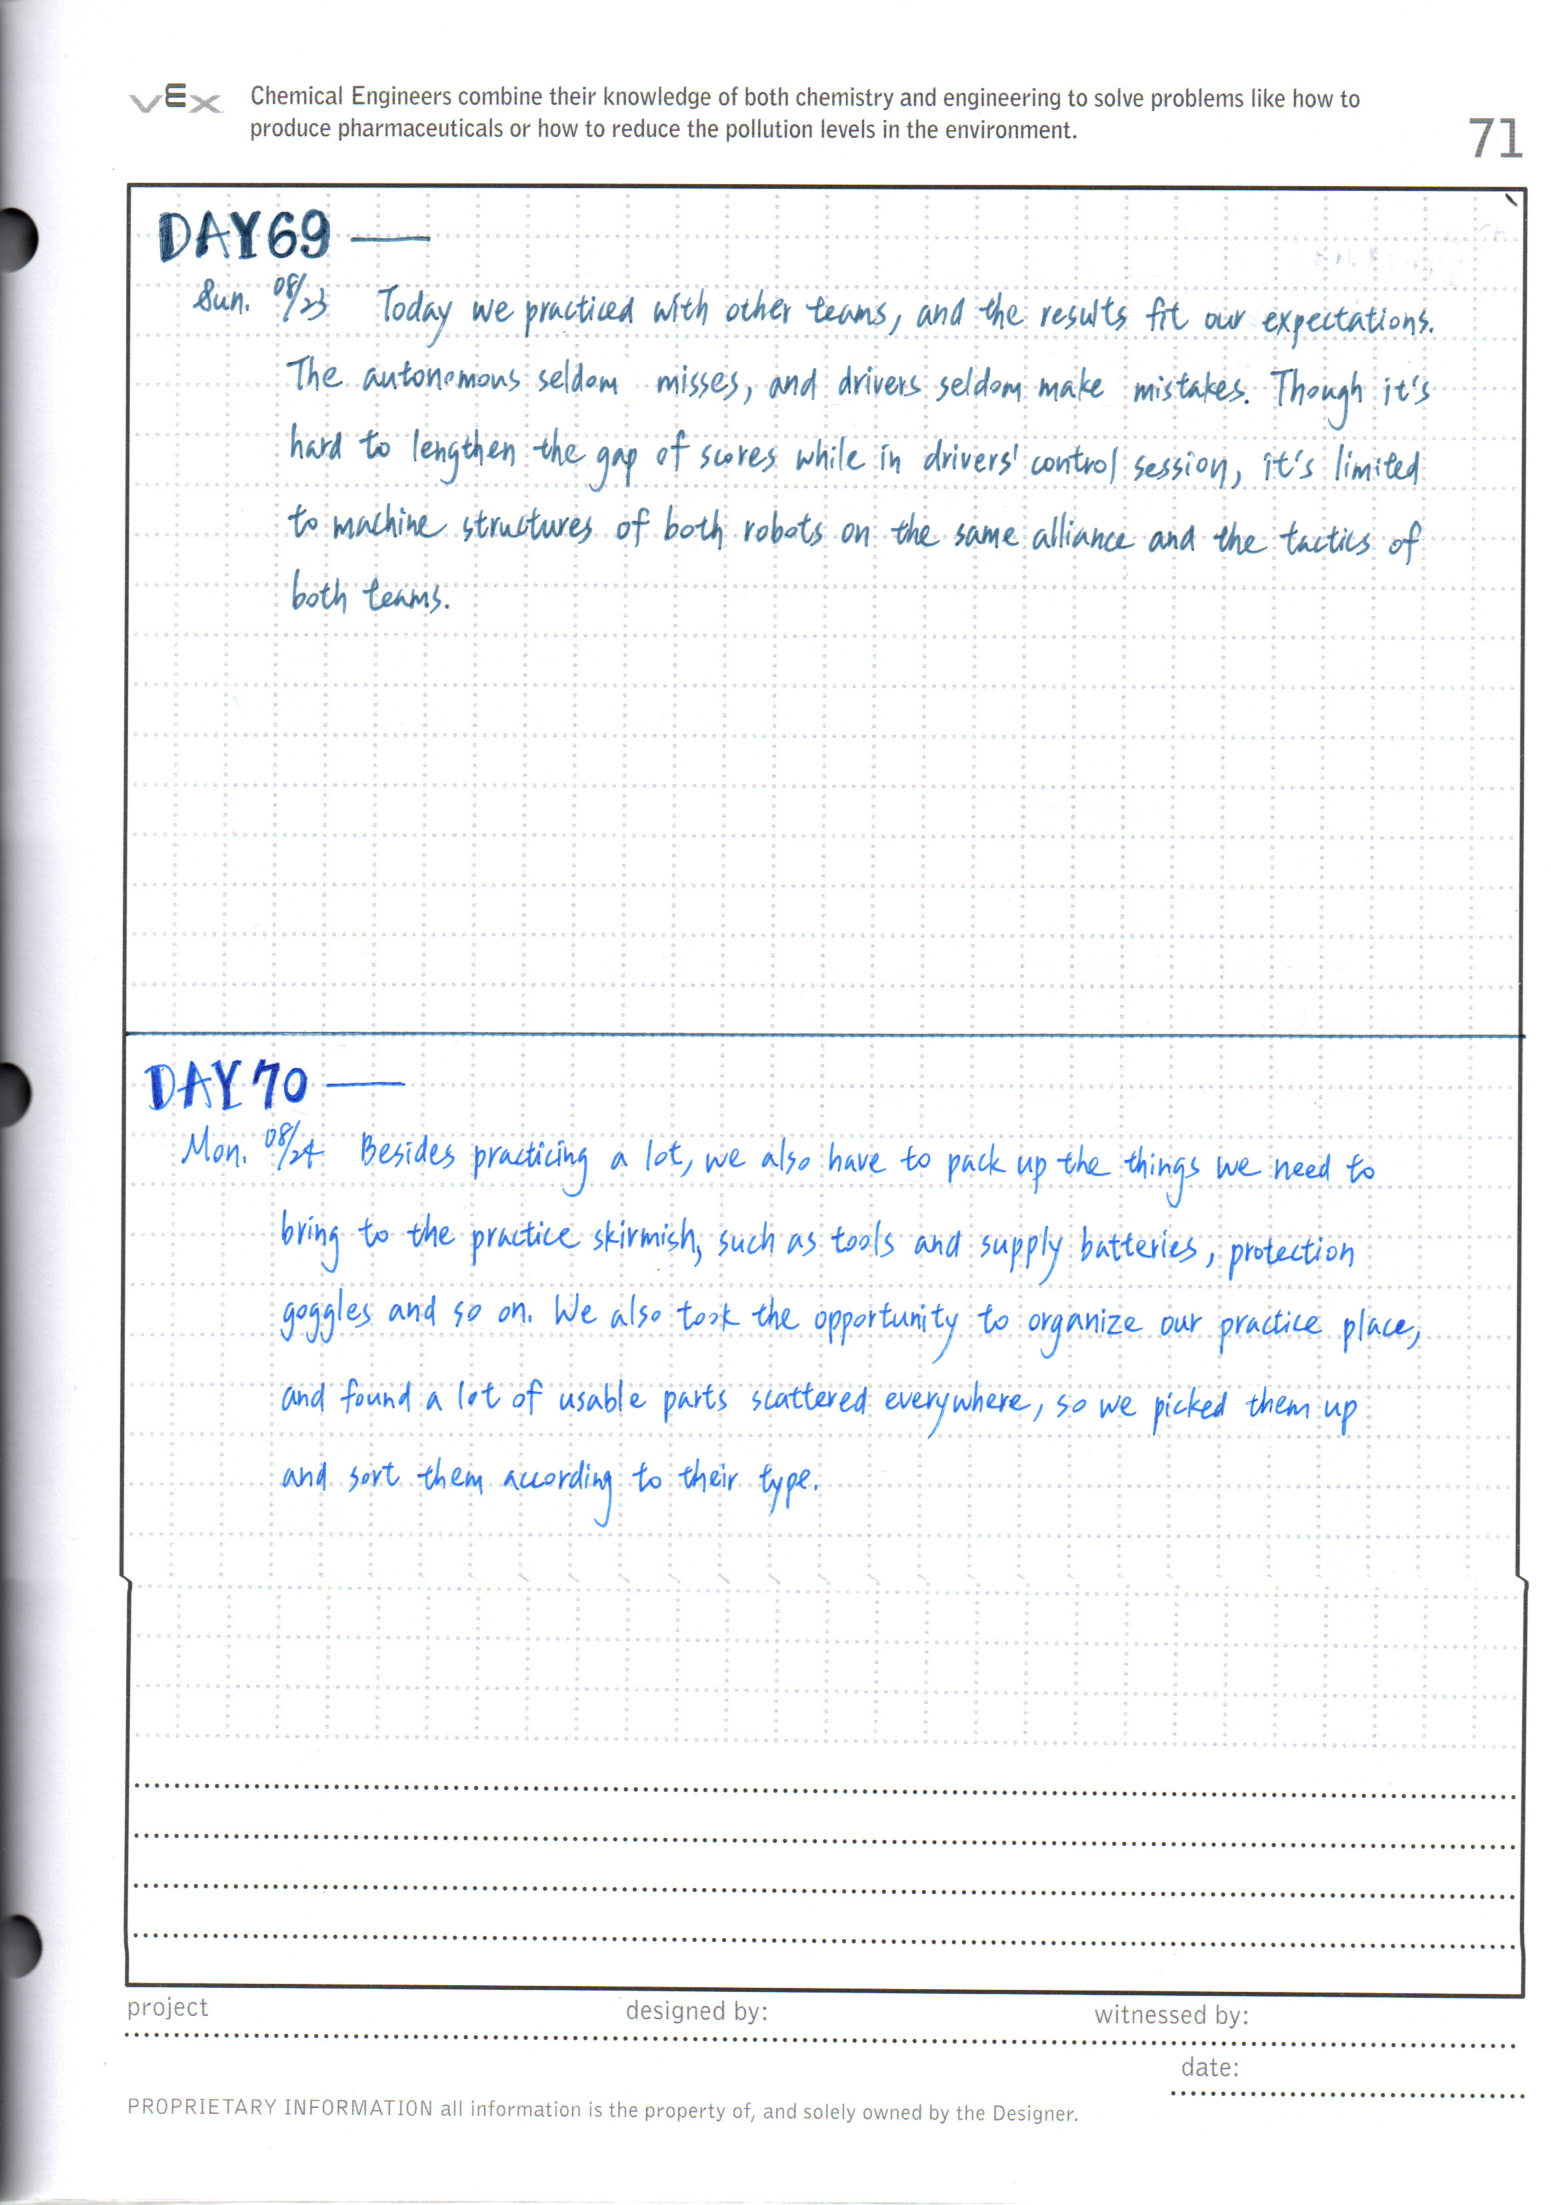 VEX
Chemical Engineers combine their knowledge of both chemistry and engineering to solve problems like how to
produce pharmaceuticals or how to reduce the pollution levels in the environment.
71
DAY69 —
Sun. 08/23 Today we practiced with other teams, and the results fit our expectations.
The autonomous seldom misses, and drivers seldom make mistakes. Though it's
hard to lengthen the gap of scores while in drivers' control session, it's limited
to machine structures of both robots on the same alliance and the tactics of
both teams.
DAY70 —
Mon. 08/24 Besides practicing a lot, we also have to pack up the things we need to
bring to the practice skirmish, such as tools and supply batteries, protection
goggles and so on. We also took the opportunity to organize our practice place,
and found a lot of usable parts scattered everywhere, so we picked them up
and sort them according to their type.
project designed by: witnessed by:
date:
PROPRIETARY INFORMATION all information is the property of, and solely owned by the Designer.